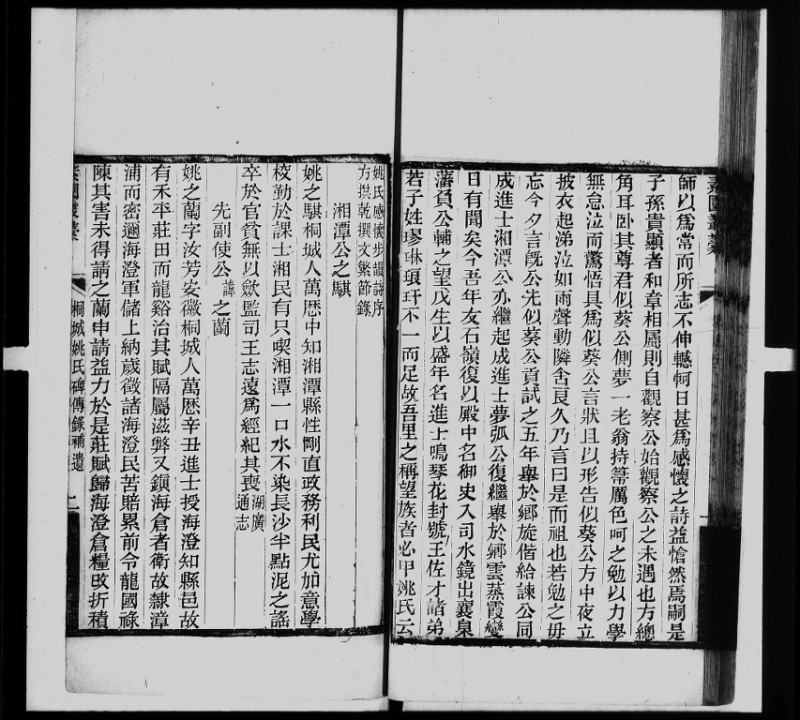 師以爲常而所志不伸轗軻日甚爲感懷之詩益愴然焉嗣是
子孫貴顯者和章相屬則自觀察公始觀察公之未遇也方總
角耳臥其尊君似葵公側夢一老翁持箒厲色呵之勉以力學
無怠泣而驚悟具爲似葵公言狀且以形告似葵公方中夜立
披衣起涕泣如雨聲動隣舍良久乃言曰是而祖也若勉之毋
忘今夕言既公先似葵公貢試之五年舉於鄉旋偕給諫公同
成進士湘潭公亦繼起成進士夢弧公復繼舉於鄉雲蒸霞變
日有聞矣今吾年友石嶺復以殿中名御史入司水鏡出襄臬
藩負公輔之望戊生以盛年名進士鳴琴花封號王佐才諸弟
若子姓璆琳琅玕不一而足故吾里之稱望族者必甲姚氏云
姚氏感懷步韻詩序
方撰乾撰文繁節錄
湘潭公之騏
姚之騏桐城人萬厯中知湘潭縣性剛直政務利民尤加意學
校勤於課士湘民有只喫湘潭一口水不染長沙半點泥之謠
卒於官貧無以歛監司王志遠爲經紀其喪湖廣通志
先副使公諱之蘭
姚之蘭字汝芳安徽桐城人萬厯辛丑進士授海澄知縣邑故
有禾平莊田而龍谿治其賦隔屬滋弊又鎭海倉者衛故隸漳
浦而密邇海澄軍儲上納歲徵諸海澄民苦賠累前令龍國祿
陳其害未得請之蘭申請益力於是莊賦歸海澄倉糧改折積
桐城姚氏碑傳錄補遺
二